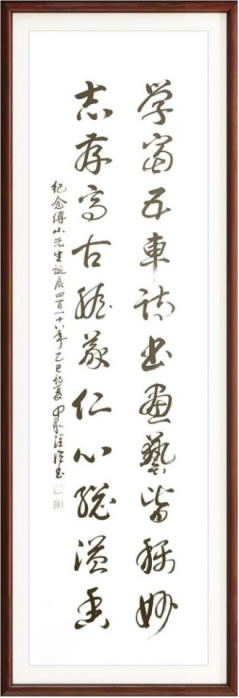 學富五車詩書畫藝皆稱妙
志存高古義仁心總溢香
紀念傅山先生誕辰四百一十八年乙巳夏書